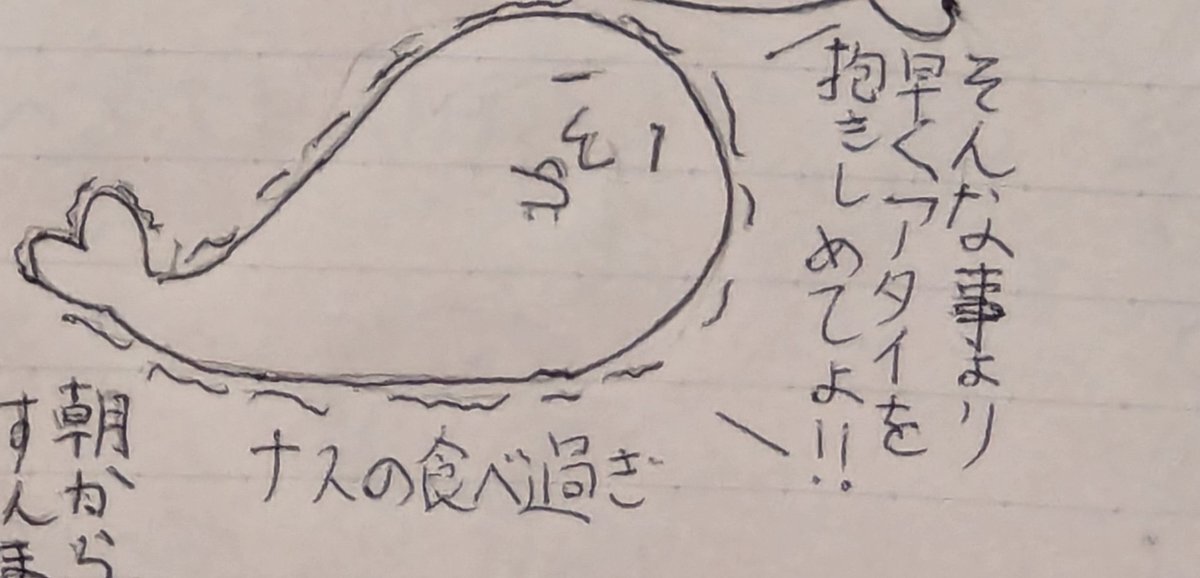 そんな事より
早くアタイを
抱きしめてよ!!
ナスの食べ過ぎ
朝から
すんま